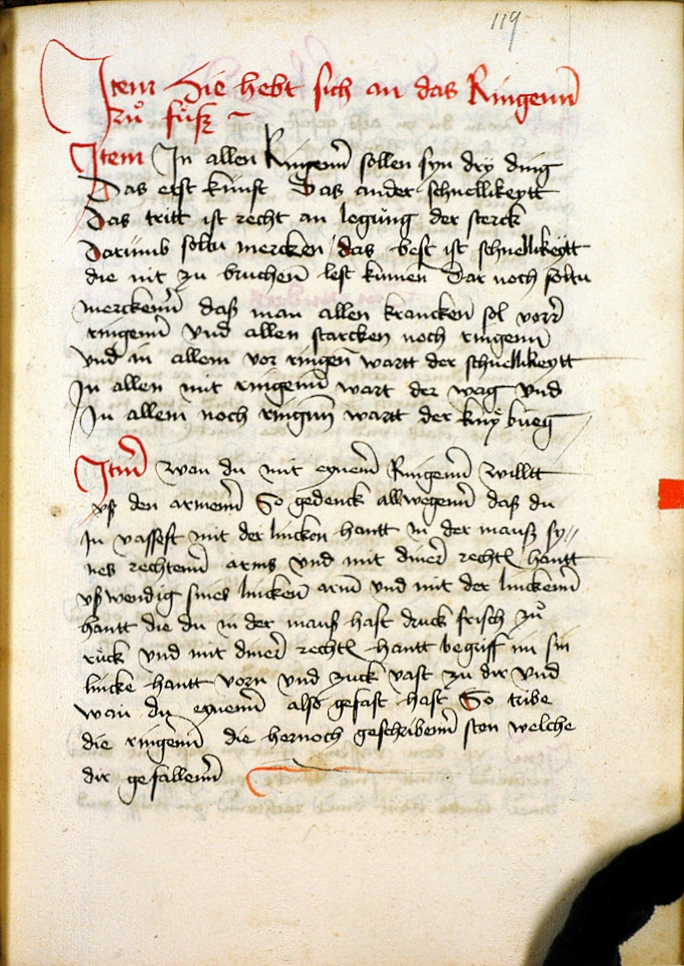 119
Item Hie hebt sich an das Ringenn
zů fůsz ~
Item In allen Ringenn sollen syn dry ding
Das erst kunst Das ander schnellikeytt
Das tritt ist recht an legung der sterck
Darumb soltu mercken / das best ist schnellikeytt
die nit zu bruchen lest kunnen Dar noch soltu
merckenn daß man allen krancken sol vorr
ringenn vnd allen starcken noch ringenn
vnd in allem vor ringen wartt der schnellikeytt
In allen mit ringenn wart der wag vnd
In allem noch ringenn wartt der knÿ bueg
Item wan du mit eynem Ringenn willtt
vß den armenn So gedenck allwegenn daß du
In vassest mit der lincken hantt in der mauß sy//
nes rechtenn arms vnd mit diner rechten hantt
vßwendig sines lincken arm vnd mit der linckenn
hantt die du in der mauß hast druck frisch zů
růck vnd mit diner rechten hantt begriff im sin
lincke hantt vorn vnd zuck vast zu dir vnd
wan du eynenn alß gefast hast So tribe
die ringenn die hernoch geschribenn sten welche
dir gefallenn